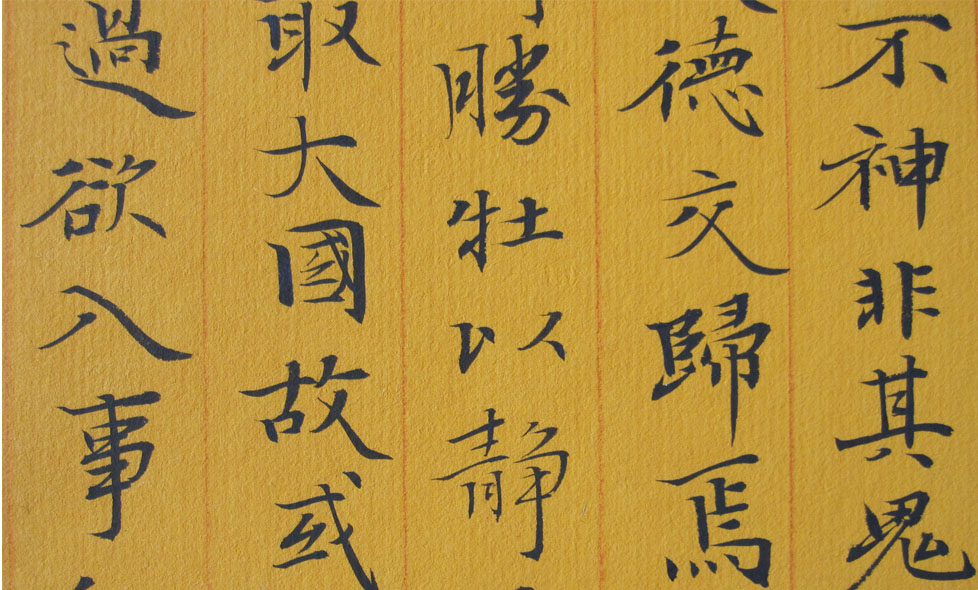 不神非其鬼
德交歸焉
勝牡以静
取大國故或
過欲入事